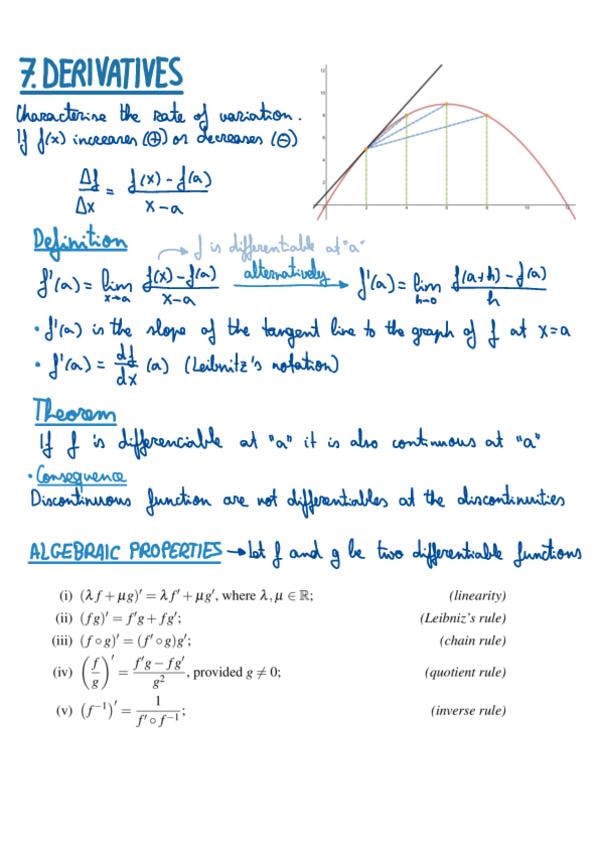 7. DERIVATIVES
Characterise the rate of variation.
If f(x) increases (⊕) or decreases (⊖)
Δf/Δx = (f(x) - f(a))/(x - a)
Definition
f is differentiable at "a"
f'(a) = lim x→a (f(x) - f(a))/(x - a) alternatively f'(a) = lim h→0 (f(a+h) - f(a))/h
• f'(a) is the slope of the tangent line to the graph of f at x=a
• f'(a) = df/dx (a) (Leibnitz's notation)
Theorem
If f is differenciable at "a" it is also continuous at "a"
• Consequence
Discontinuous function are not differentiables at the discontinuities
ALGEBRAIC PROPERTIES → let f and g be two differentiable functions
(i) (λf + μg)′ = λf′ + μg′, where λ, μ ∈ ℝ; (linearity)
(ii) (fg)′ = f′g + fg′; (Leibniz's rule)
(iii) (f ∘ g)′ = (f′ ∘ g)g′; (chain rule)
(iv) (f/g)′ = (f′g − fg′)/g², provided g ≠ 0; (quotient rule)
(v) (f⁻¹)′ = 1/(f′ ∘ f⁻¹); (inverse rule)